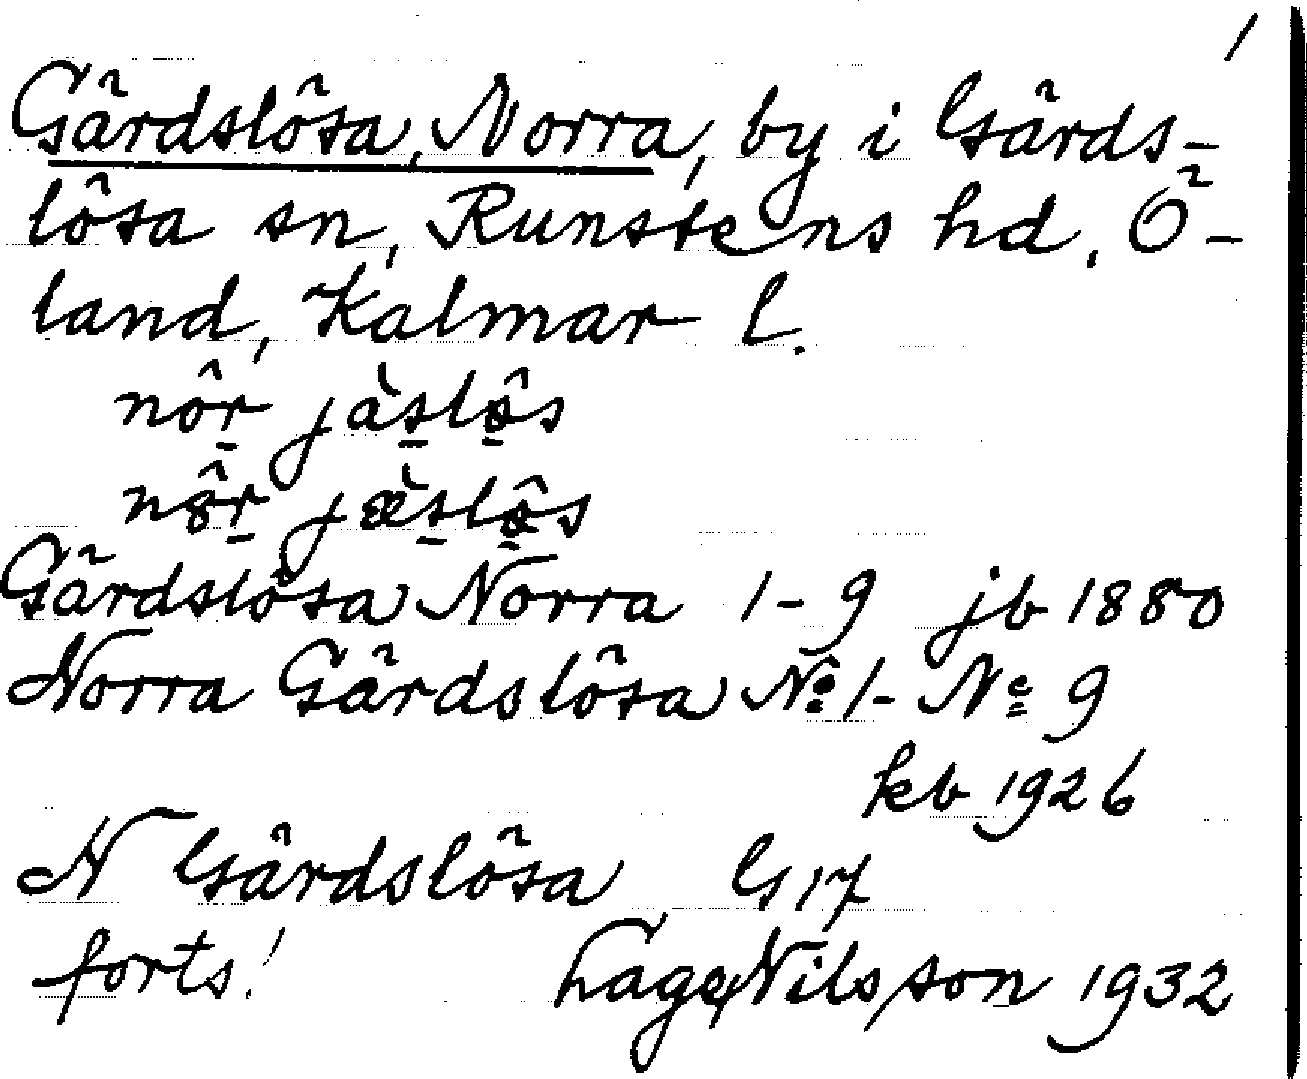 1
Gärdslösa, Norra, by i Gärds-
lösa sn, Runstens hd, Ö-
land, Kalmar l.
nôr jàslôs
jæ̀slôs
Gärdslösa Norra 1-9 jb 1880
Norra Gärdslösa No 1- No 9
kb 1926
N Gärdslösa G 17
forts! Lage Nilsson 1932